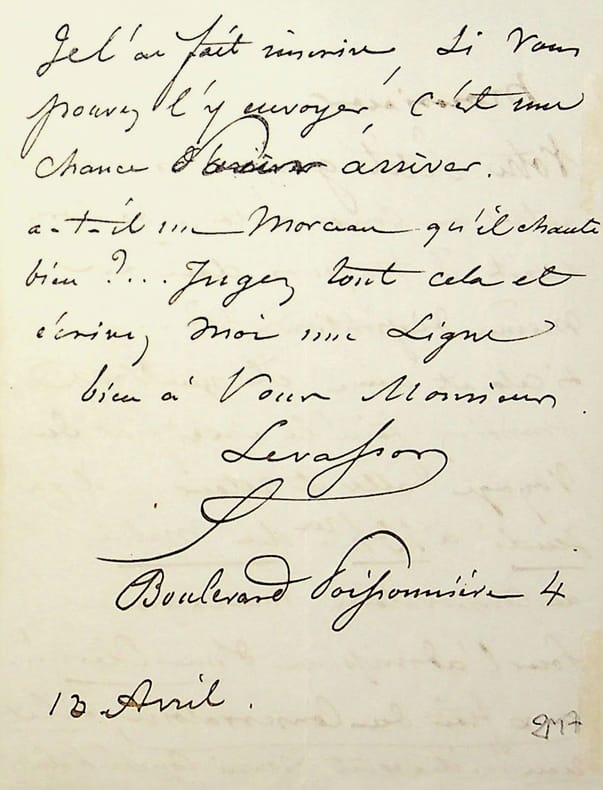 Je l'ai fait inscrire, Si Vous
pouvez l'y envoyer, c'est une
chance d'arriver.
a-t-il un Morceau qu'il chante
bien ?... Jugez tout cela et
écrivez moi une Ligne
bien à Vous Monsieur
Levassor
Boulevard Poissonnière 4
13 Avril.